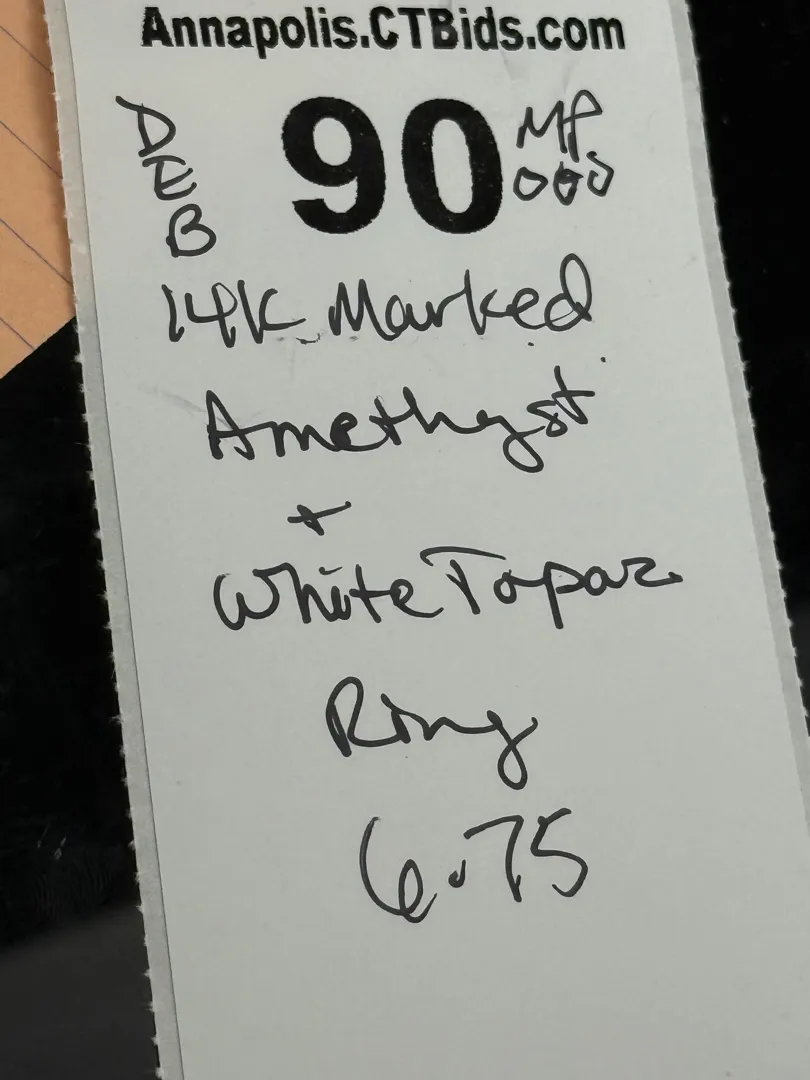 Annapolis.CTBids.com
DEB
90
MP
000
14K Marked
Amethyst
+
White Topaz
Ring
6.75